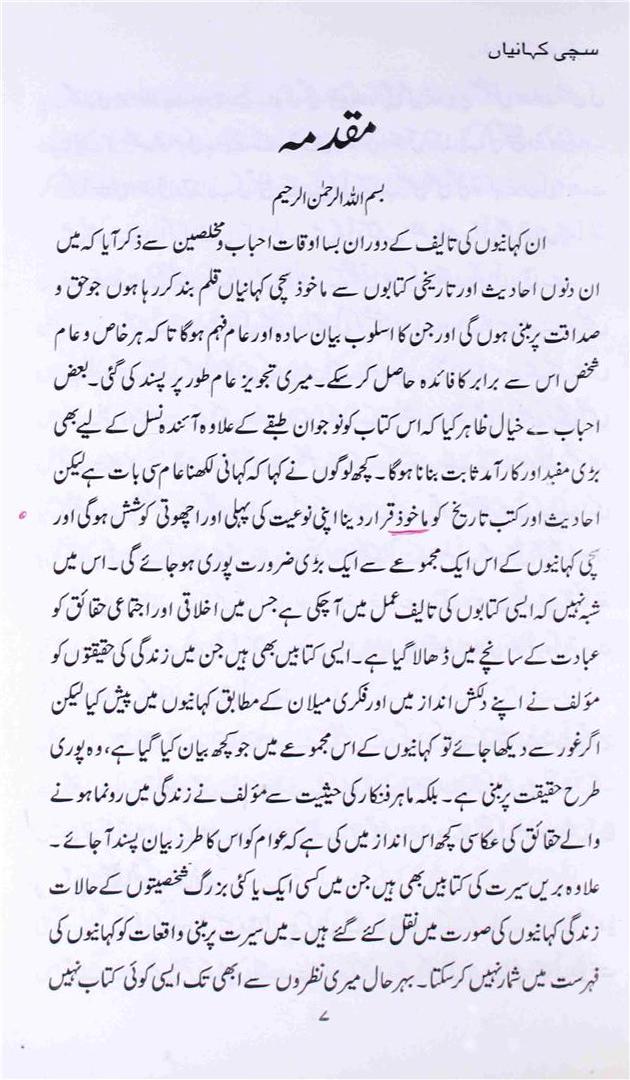 سچی کہانیاں
مقدمہ
بسم اللہ الرحمٰن الرحیم
ان کہانیوں کی تالیف کے دوران بسا اوقات احباب و مخلصین سے ذکر آیا کہ میں
ان دنوں احادیث اور تاریخی کتابوں سے ماخوذ سچی کہانیاں قلم بند کر رہا ہوں جو حق و
صداقت پر مبنی ہوں گی اور جن کا اسلوب بیان سادہ اور عام فہم ہوگا تاکہ ہر خاص و عام
شخص اس سے برابر کا فائدہ حاصل کر سکے۔ میری تجویز عام طور پر پسند کی گئی۔ بعض
احباب نے خیال ظاہر کیا کہ اس کتاب کو نوجوان طبقے کے علاوہ آئندہ نسل کے لیے بھی
بڑی مفید اور کارآمد ثابت بنانا ہوگا۔ کچھ لوگوں نے کہا کہ کہانی لکھنا عام سی بات ہے لیکن
احادیث اور کتب تاریخ کو ماخوذ قرار دینا اپنی نوعیت کی پہلی اور اچھوتی کوشش ہوگی اور
سچی کہانیوں کے اس ایک مجموعے سے ایک بڑی ضرورت پوری ہو جائے گی۔ اس میں
شبہ نہیں کہ ایسی کتابوں کی تالیف عمل میں آچکی ہے جس میں اخلاقی اور اجتماعی حقائق کو
عبادت کے سانچے میں ڈھالا گیا ہے۔ ایسی کتابیں بھی ہیں جن میں زندگی کی حقیقتوں کو
مؤلف نے اپنے دلکش انداز میں اور فکری میلان کے مطابق کہانیوں میں پیش کیا لیکن
اگر غور سے دیکھا جائے تو کہانیوں کے اس مجموعے میں جو کچھ بیان کیا گیا ہے، وہ پوری
طرح حقیقت پر مبنی ہے۔ بلکہ ماہر فنکار کی حیثیت سے مؤلف نے زندگی میں رونما ہونے
والے حقائق کی عکاسی کچھ اس انداز میں کی ہے کہ عوام کو اس کا طرز بیان پسند آجائے۔
علاوہ بریں سیرت کی کتابیں بھی ہیں جن میں کسی ایک یا کئی بزرگ شخصیتوں کے حالات
زندگی کہانیوں کی صورت میں نقل کئے گئے ہیں۔ میں سیرت پر مبنی واقعات کو کہانیوں کی
فہرست میں شمار نہیں کر سکتا۔ بہر حال میری نظروں سے ابھی تک ایسی کوئی کتاب نہیں
۷